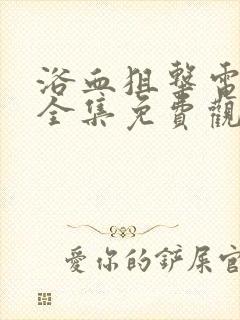 浴血狙擊電
全集免費觀
愛你的鏟屎官